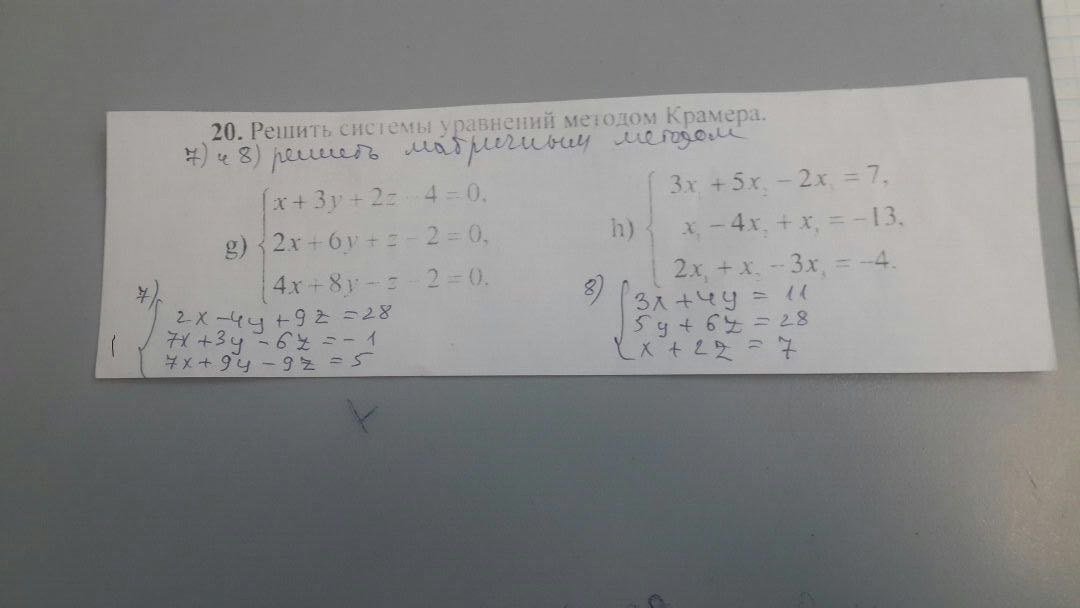 20. Решить системы уравнений методом Крамера.
7) и 8) решить матричным методом
g) { x + 3y + 2z - 4 = 0,
2x + 6y + z - 2 = 0,
4x + 8y - z - 2 = 0.
h) { 3x₁ + 5x₂ - 2x₃ = 7,
x₁ - 4x₂ + x₃ = -13,
2x₁ + x₂ - 3x₃ = -4.
7) { 2x - 4y + 9z = 28
7x + 3y - 6z = -1
7x + 9y - 9z = 5
8) { 3x + 4y = 11
5y + 6z = 28
x + 2z = 7